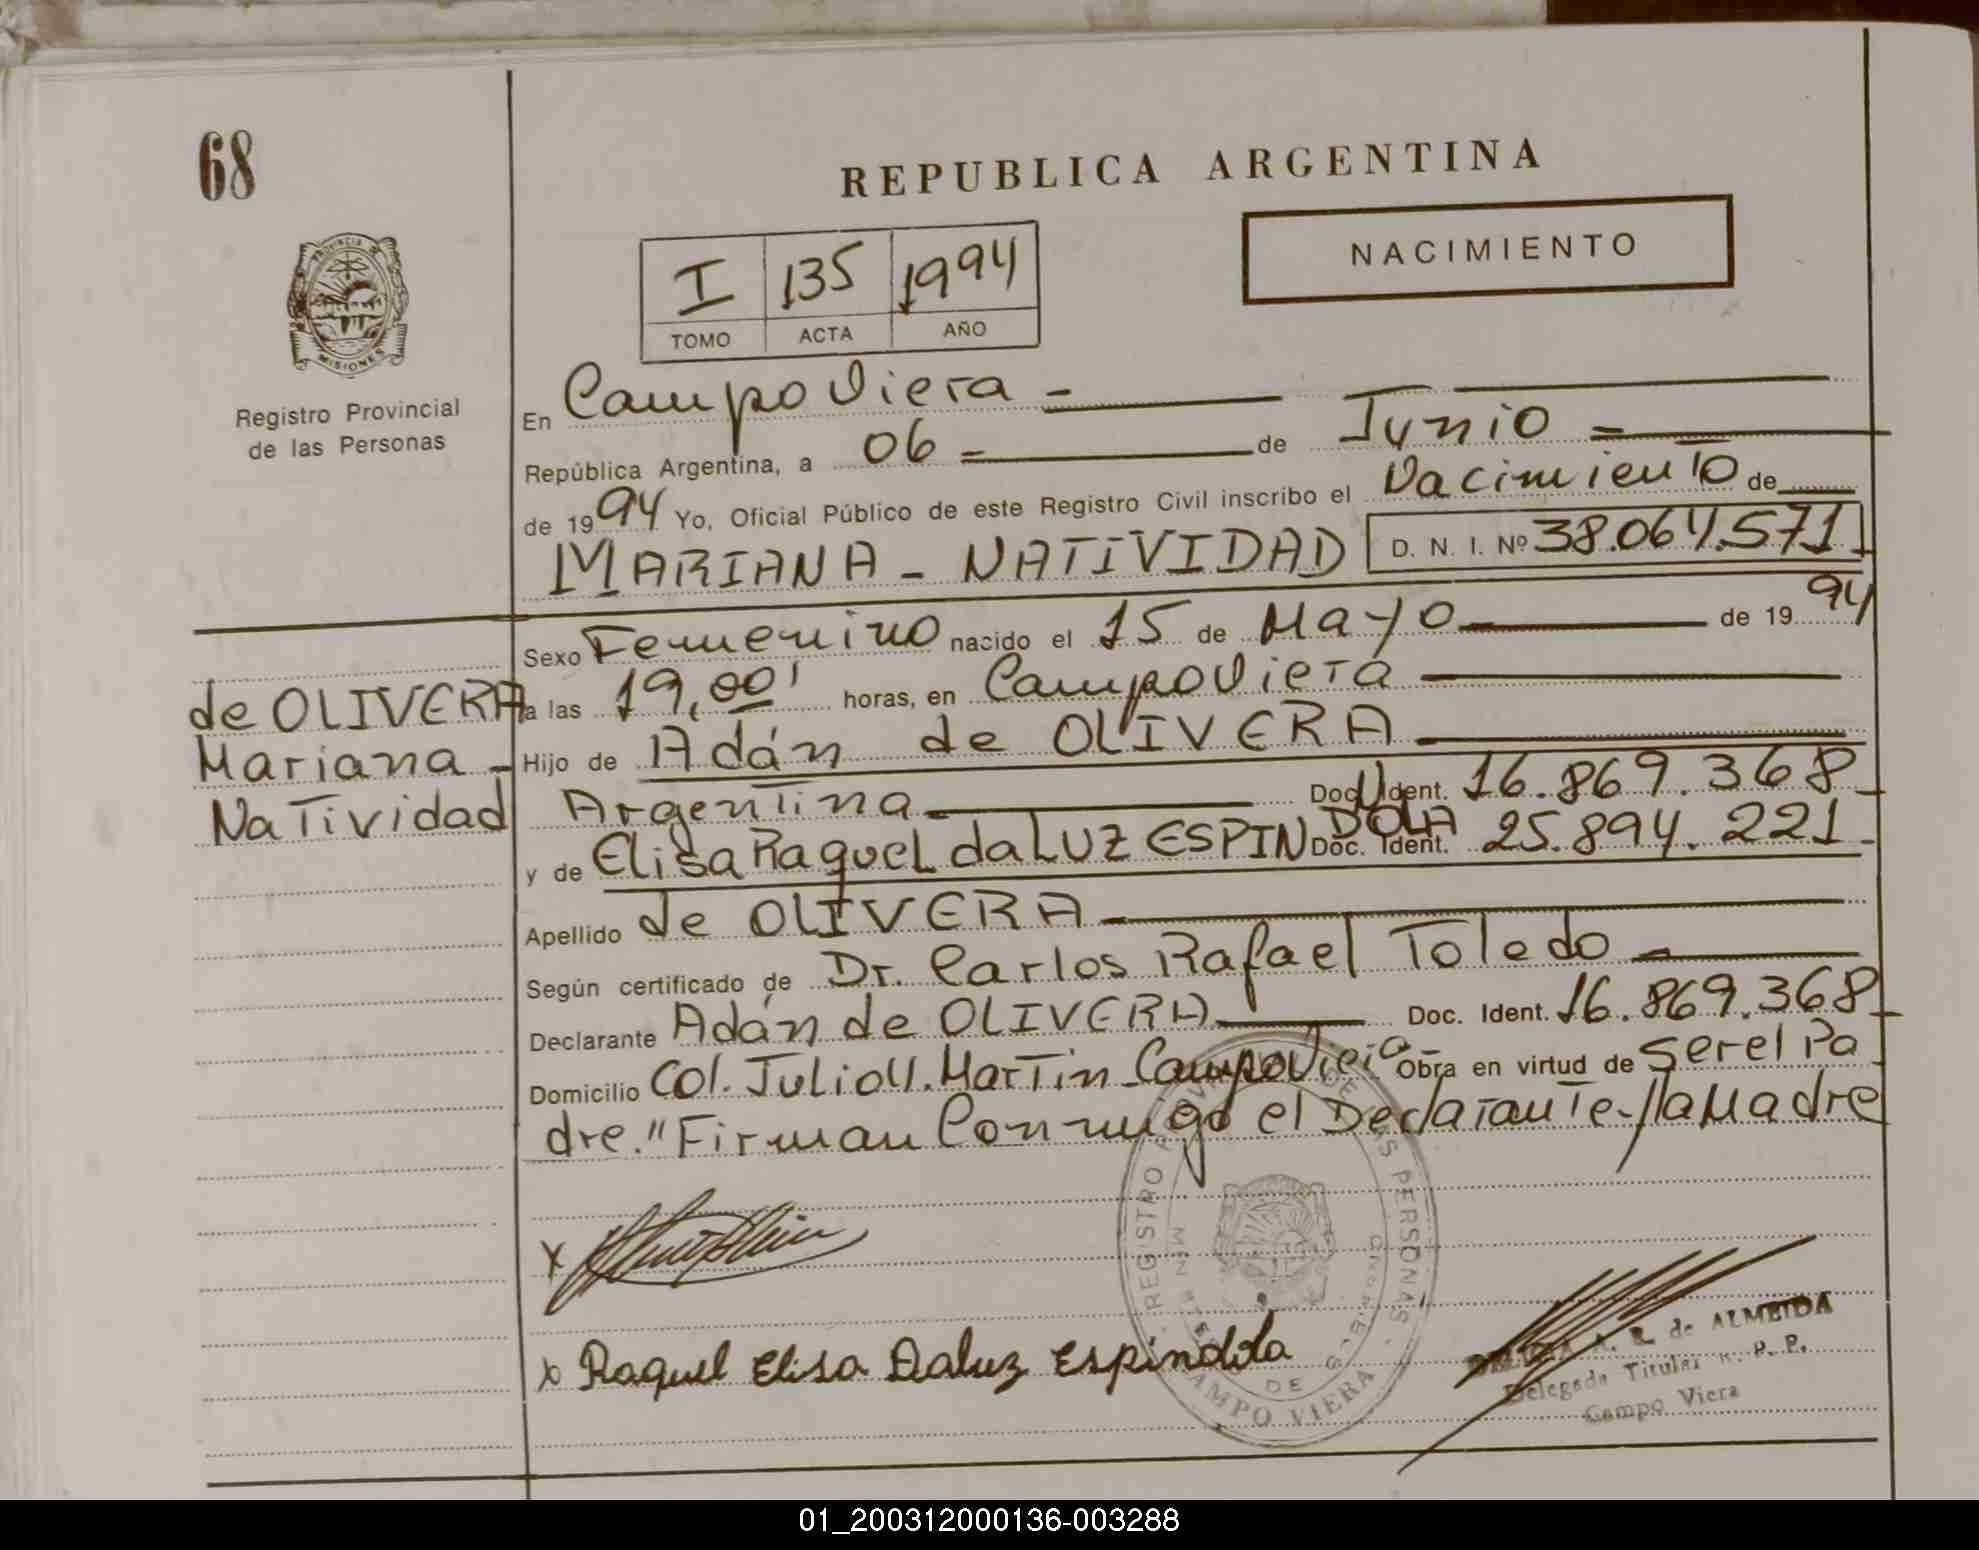 68
REPUBLICA ARGENTINA
NACIMIENTO
I 135 1994
TOMO ACTA AÑO
PROVINCIA DE
MISIONES
Registro Provincial
de las Personas
En Campo Viera
República Argentina, a 06 de Junio
de 1994 Yo, Oficial Público de este Registro Civil inscribo el Nacimiento de
MARIANA - NATIVIDAD D. N. I. Nº 38.064.571
Sexo Femenino nacido el 15 de Mayo de 1994
de OLIVERA
Mariana -
Natividad
a las 19,00' horas, en Campo Viera
Hijo de Adán de OLIVERA
Argentina Doc. Ident. 16.869.368
y de Elisa Raquel da LUZ ESPINDOLA Doc. Ident. 25.894.221
Apellido de OLIVERA
Según certificado de Dr. Carlos Rafael Toledo
Declarante Adán de OLIVERA Doc. Ident. 16.869.368
Domicilio Col. Julio U. Martin Campo Viera Obra en virtud de ser el Pa
dre." Firman Conmigo el Declarante y la Madre
x
x Raquel Elisa Daluz Espindola
REGISTRO PROVINCIAL DE LAS PERSONAS
CAMPO VIERA
DE
R. de ALMEIDA
Delegada Titular R. P. P.
Campo Viera
01_200312000136-003288